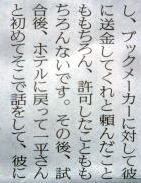 し、ブックメーカーに対して彼
に送金してくれと頼んだこと
ももちろん、許可したことも
ちろんないです。その後、試
合後、ホテルに戻って一平さん
と初めてそこで話をして、彼に